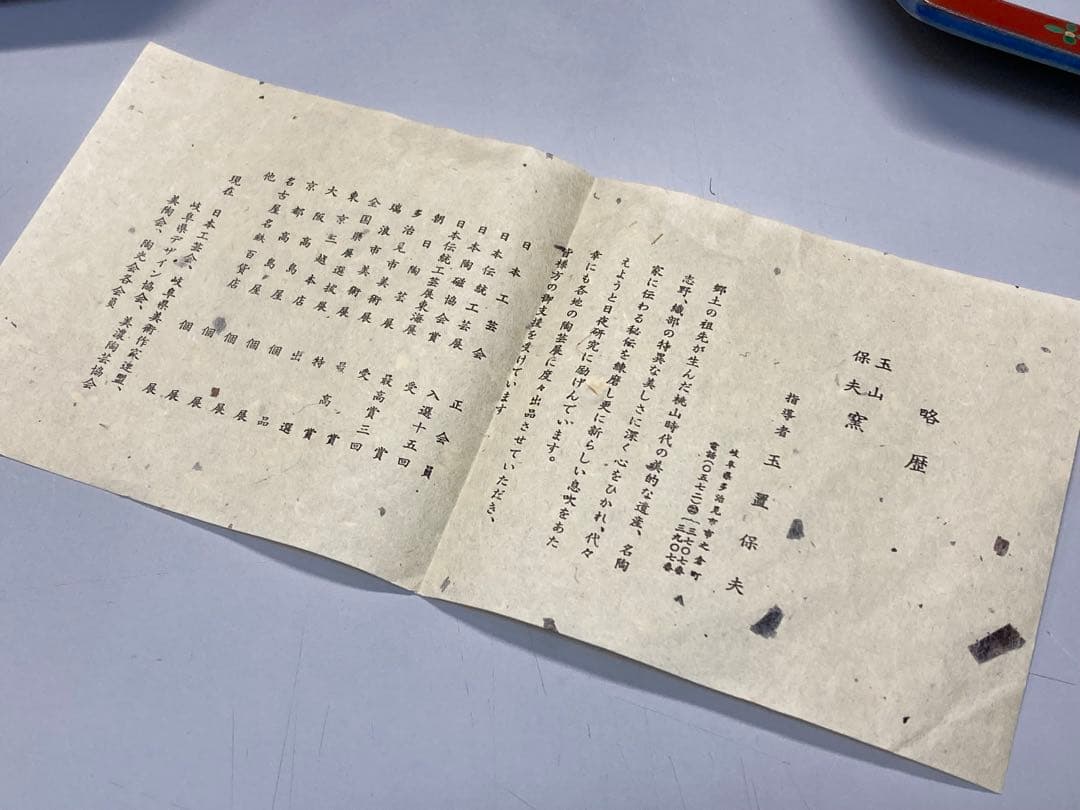 略歴
玉山
保夫窯
指導者 玉置保夫
岐阜県多治見市市之倉町
電話(〇五七二)㉒
三七〇七番
三九〇七番
郷土の祖先が生んだ桃山時代の 的な遺産、名陶
志野、織部の特異な美しさに深く心をひかれ、代々
家に伝わる秘伝を練磨し更に新らしい息吹をあた
えようと日夜研究に励げんでいます。
幸にも各地の陶芸展に度々出品させていただき、
皆様方の御支援を受けています
日本工芸会 正会員
日本伝統工芸展 入選十五回
日本陶磁協会賞 受賞
日本伝統工芸展東海展 最高賞三回
朝日陶芸展 受賞
多治見市美術展 最高賞
瑞浪市美術展 特選
全国県展選抜展 出品
東京三越本店 個展
大阪高島屋 個展
京都高島屋 個展
名古屋名鉄百貨店 個展
他 個展
現在 日本工芸会、岐阜県美術作家連盟、
岐阜県デザイン協会、美濃陶芸協会
美陶会、陶光会各会員